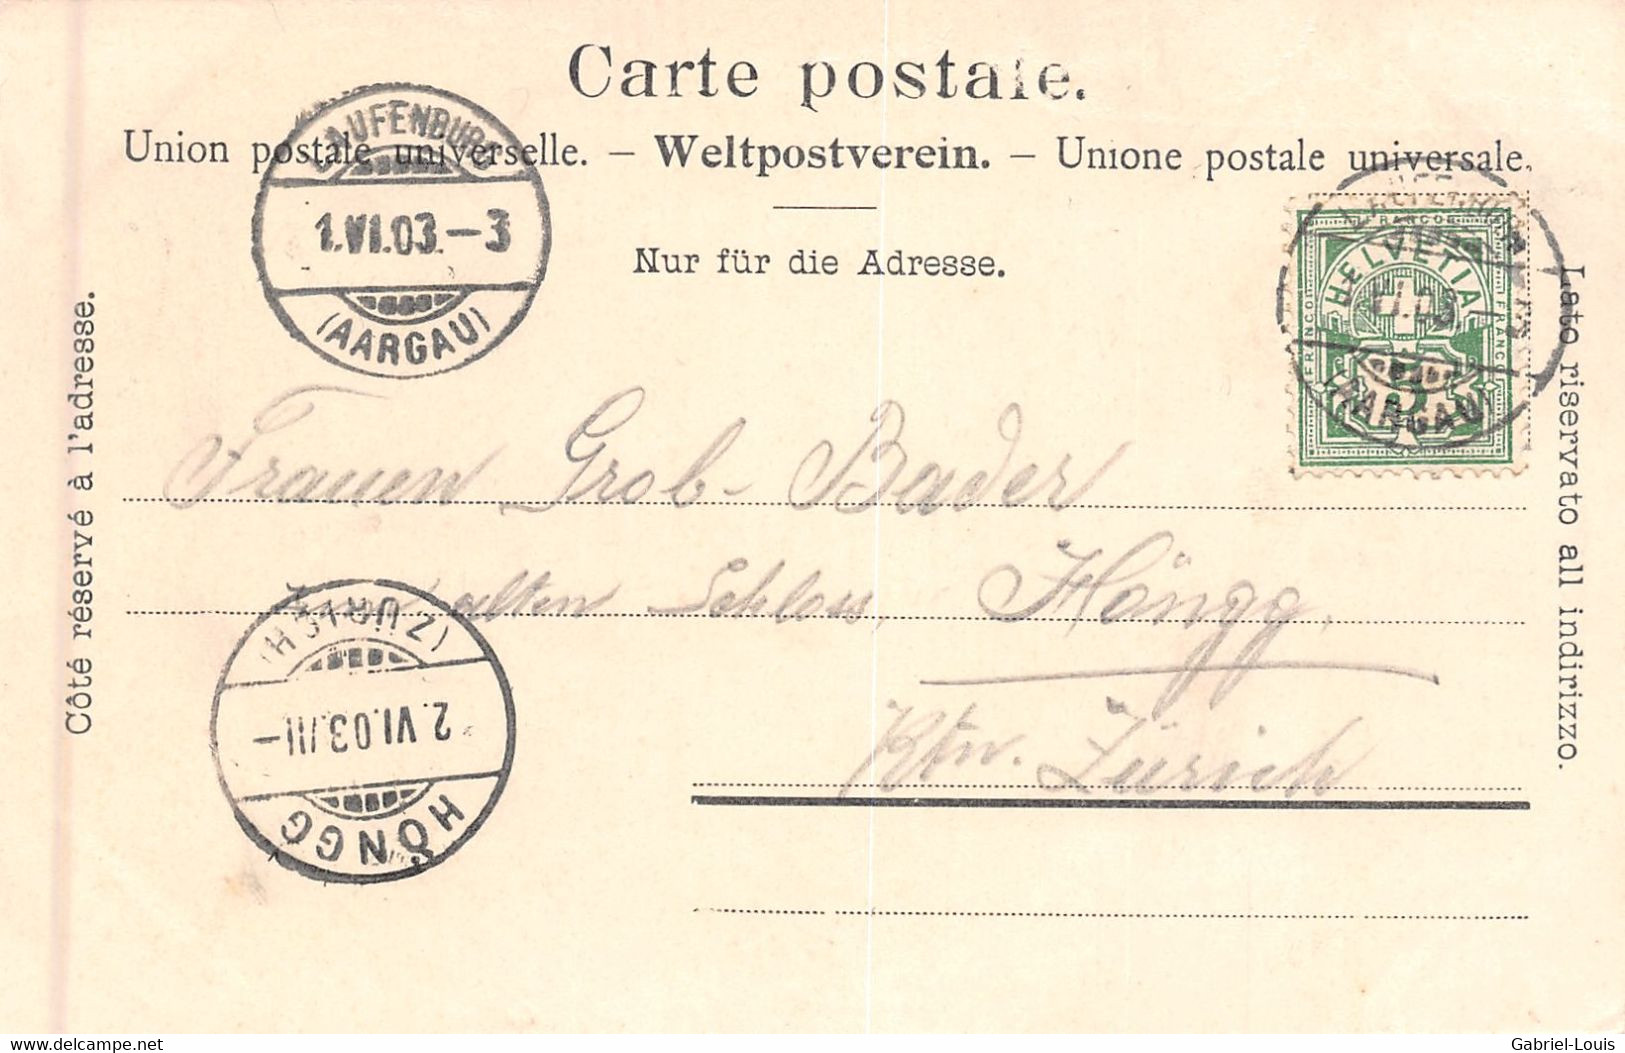 Carte postale.
Union postale universelle. – Weltpostverein. – Unione postale universale.
Nur für die Adresse.
Côté réservé à l'adresse.
Lato riservato all indirizzo.
LAUFENBURG
1.VI.03.–3
(AARGAU)
FRANCO
FRANCO
FRANCO
HELVETIA
5
VI.03
(AARGAU)
Frauen Grob-Bader
alten Schloss, Höngg,
Ktn. Zürich
(ZÜRICH)
2.VI.03.III–
HÖNGG
delcampe.net
Gabriel-Louis